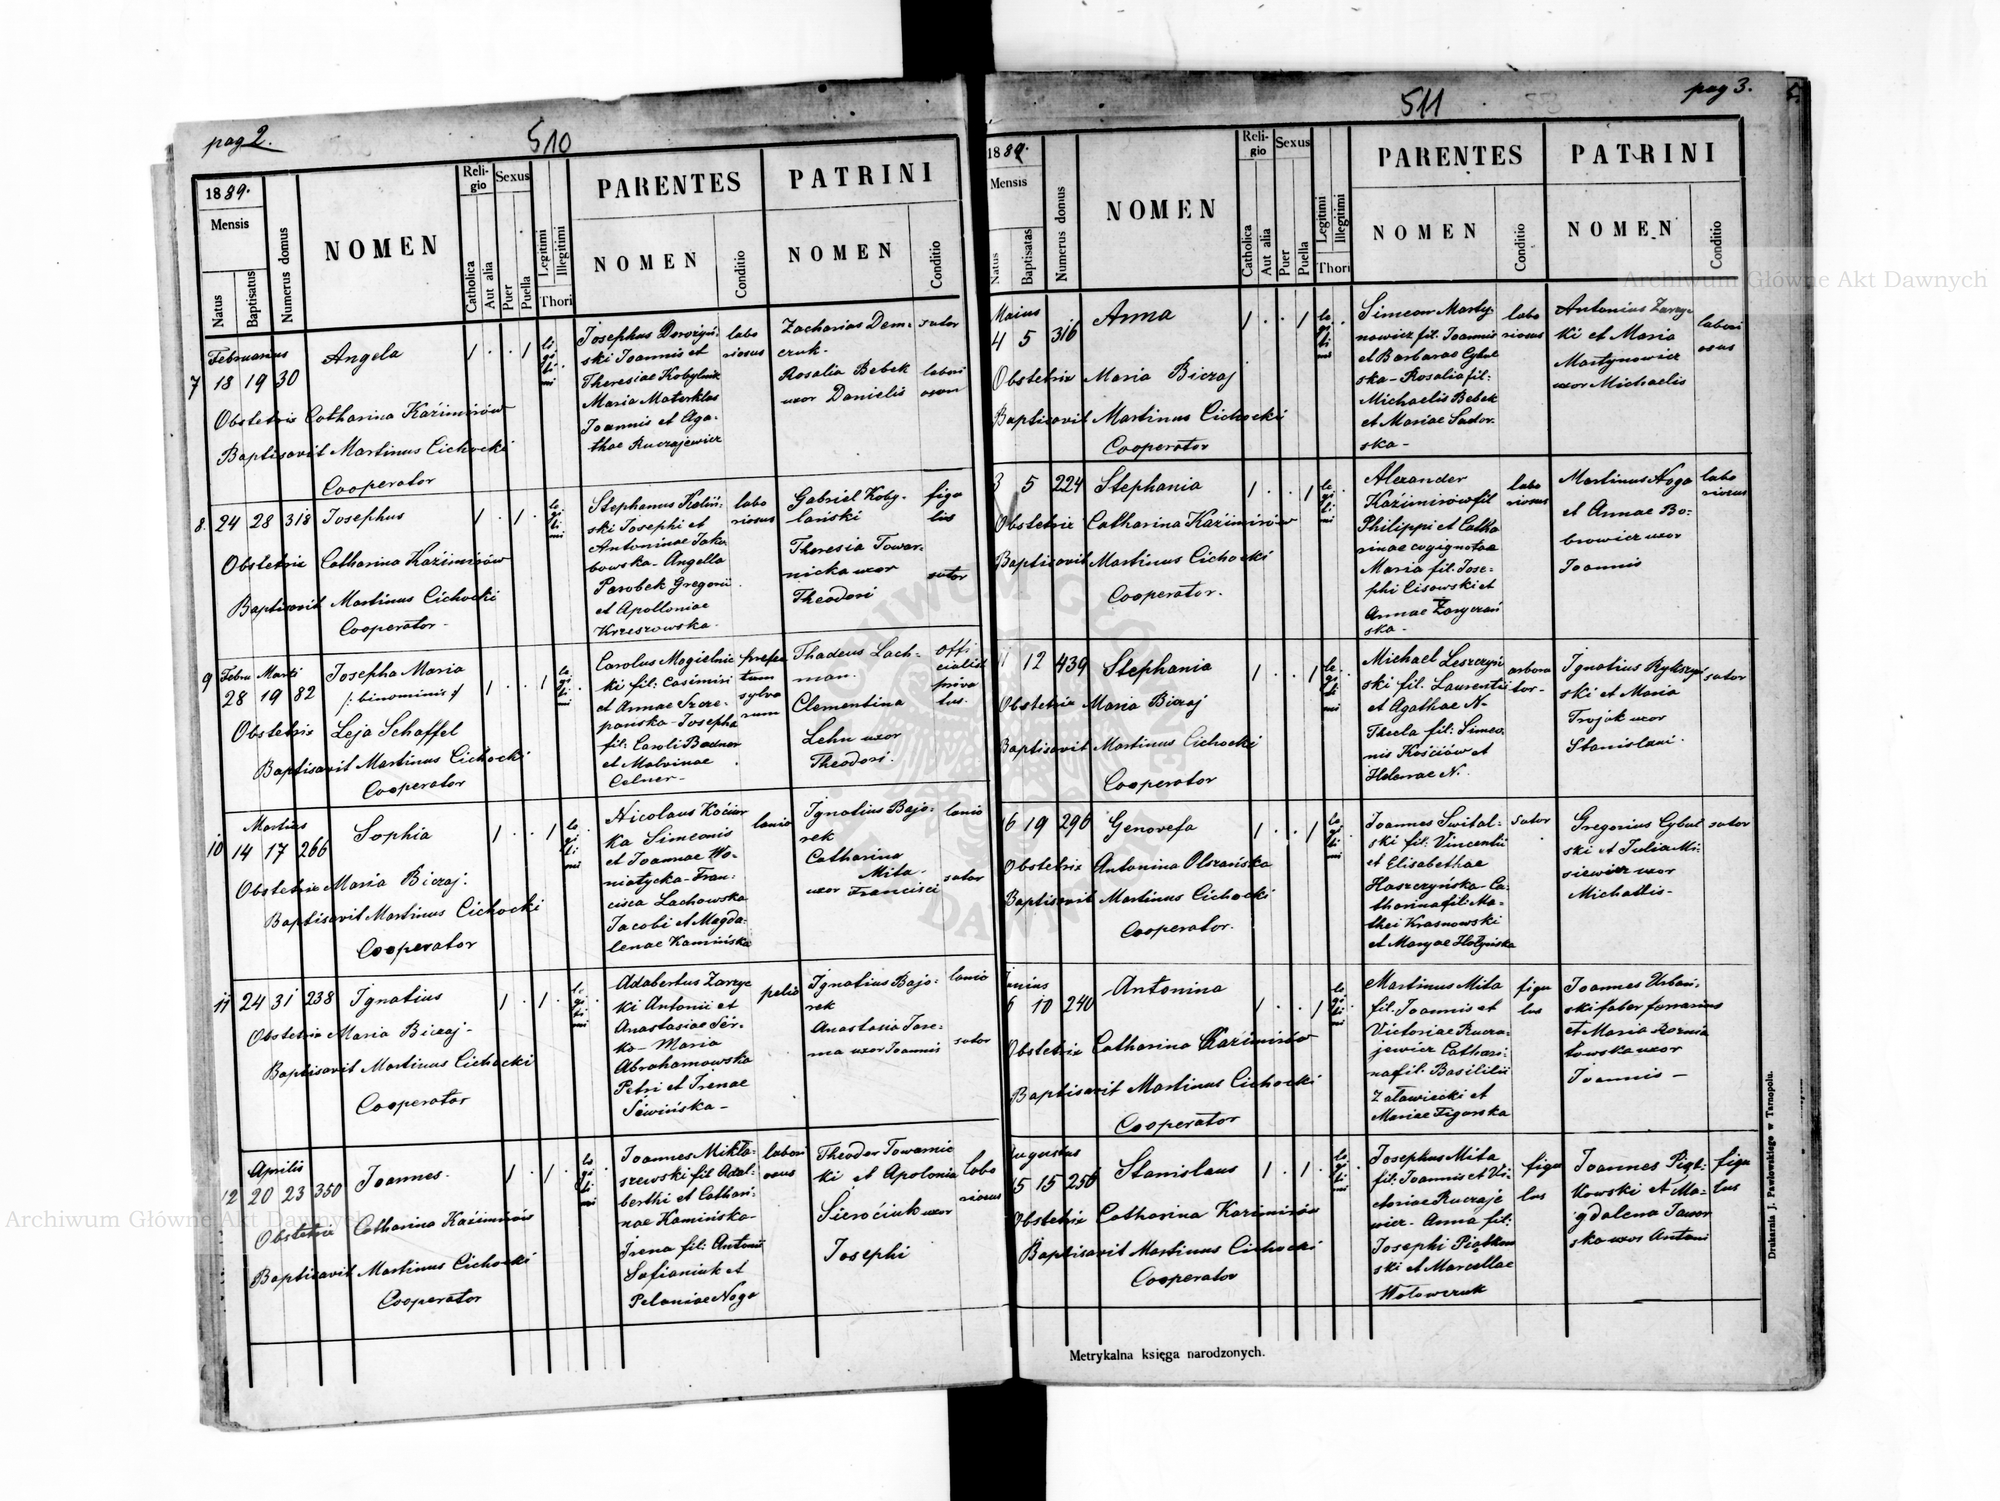 pag 2.
510
1889.
Mensis
Natus
Baptisatus
Numerus domus
NOMEN
Religio
Catholica
Aut alia
Sexus
Puer
Puella
Legitimi
Illegitimi
Thori
PARENTES
NOMEN
Conditio
PATRINI
NOMEN
Conditio
7
Februarius
18 19 30
Angela
Obstetrix Catharina Kaźimirów
Baptisavit Martinus Cichocki
Cooperator
legitimi
Josephus
ski Joannis et
Theresiae
Maria
Joannis et Aga-
thae Ruczajewicz
labo
riosus
Zacharias Dem-
czuk.
Rosalia Bebek
uxor Danielis
sutor
labori
8. 24 28 318 Josephus
Obstetrix Catharina Kaźimirów
Baptisavit Martinus Cichocki
Cooperator
legitimi
Stephanus
ski Josephi et
Antoninae Jaku-
bowska - Angella
Parobek Gregorii
et Apolloniae
Krzeszowska.
labo
riosus
Gabriel Koby-
lański
Theresia Towar-
nicka uxor
Theodori
figu
lus
sutor
9 Febru Marti
28 19 82
Josepha Maria
/: binominis :/
Obstetrix Leja Schaffel
Baptisavit Martinus Cichocki
Cooperator
legitimi
Carolus Mogielnic
ki fil: Casimiri
et Annae Szcze-
pańska - Josepha
fil: Caroli Bednar
et Malvinae
Celner -
prefec
tum
sylva
rum
Thadeus Lach-
man.
Clementina
Lehn uxor
Theodori.
offi
cialist
priva
tus.
10
Martius
14 17 266
Sophia
Obstetrix Maria Biczaj.
Baptisavit Martinus Cichocki
Cooperator
legitimi
Nicolaus Kociur
ka Simeonis
et Joannae Wo-
niatycka - Fran-
cisca Lachowska
Jacobi et Magda-
lenae Kamińska
lanio
Ignatius Bajo-
rek
Catharina
Mita
uxor Francisci
lanio
sutor
11 24 31 238 Ignatius
Obstetrix Maria Biczaj -
Baptisavit Martinus Cichocki
Cooperator
legitimi
Adabertus Zarzyc
ki Antonii et
Anastasiae
ko - Maria
Abrahamowska
Petri et Irenae
pelio
Ignatius Bajo-
rek
Anastasia Jare-
ma uxor Joannis
lanio
sutor
12
Aprilis
20 23 350
Joannes.
Obstetrix Catharina Kaźimirów
Baptisavit Martinus Cichocki
Cooperator
legitimi
Joannes Mikla-
szewski fil Adal-
berthi et Cathari-
nae Kamińska -
Irena fil: Antonii
Safianiuk et
Pelaniae Noga
labori
osus
Theodor Towarnic
ki et Apolonia
uxor
Josephi
labo
riosus
pag 3.
511
1889.
Mensis
Natus
Baptisatas
Numerus domus
NOMEN
Religio
Catholica
Aut alia
Sexus
Puer
Puella
Legitimi
Illegitimi
Thori
PARENTES
NOMEN
Conditio
PATRINI
NOMEN
Conditio
Maius
4 5 316
Anna
Obstetrix Maria Biczaj
Baptisavit Martinus Cichocki
Cooperator
legitimi
Simeon Marty-
nowicz fil. Joannis
et Barbarae Cybul
ska - Rosalia fil:
Michaelis Bebek
et Mariae Sador-
ska -
labo
riosus
Antonius Zarzyc
ki et Maria
Martynowicz
uxor Michaelis
labori
osus
3 5 224 Stephania
Obstetrix Catharina Kaźimirów
Baptisavit Martinus Cichocki
Cooperator.
legitimi
Alexander
Kaźimirów fil
Philippi et Catha
rinae
Maria fil: Jose-
phi Lisowski et
Annae
ska -
labo
riosus
Martinus Noga
et Annae Bo-
browicz uxor
Joannis
labo
riosus
11 12 439 Stephania
Obstetrix Maria Biczaj
Baptisavit Martinus Cichocki
Cooperator
legitimi
Michael Leszczyń
ski fil. Laurentii
et Agathae N -
Thecla fil: Simeo
nis Kościów et
Helenae N.
arbora
tor -
Ignatius
ski et Maria
Trojak uxor
Stanislaui.
sutor
16 19 296 Genovefa
Obstetrix Antonina Olszańska
Baptisavit Martinus Cichocki
Cooperator.
legitimi
Joannes Swital-
ski fil: Vincentii
et Elisabethae
Haszczyńska - Ca-
tharina fil: Ma-
thei Krasnowski
et Maryae Hołyńska
sutor
Gregorius Cybul
ski et Julia Mi-
siewicz uxor
Michaelis -
sutor
Junius
6 10 240
Antonina
Obstetrix Catharina Kaźimirów
Baptisavit Martinus Cichocki
Cooperator
legitimi
Martinus Mita
fil: Joannis et
Victoriae Rucza-
jewicz Cathari-
na fil: Basilii
Załawiecki et
Mariae Figurska
figu
lus
Joannes Urbań-
ski faber ferrarius
et Maria
towska uxor
Joannis -
Augustus
15 15 256
Stanislaus
Obstetrix Catharina Kazimirów
Baptisavit Martinus Cichocki
Cooperator
legitimi
Josephus Mita
fil: Joannis et Vi-
ctoriae Ruczaje
wicz - Anna fil:
Josephi Piątkow
ski et Marcellae
Wołowczuk
figu
lus
Joannes Piąt-
kowski et Ma-
gdalena Jawor
ska uxor Antoni
figu
lus
Metrykalna księga narodzonych.
Drukarnia J. Pawłowskiego w Tarnopolu.
Archiwum Główne Akt Dawnych
Archiwum Główne Akt Dawnych
ARCHIWUM GŁÓWNE AKT DAWNYCH